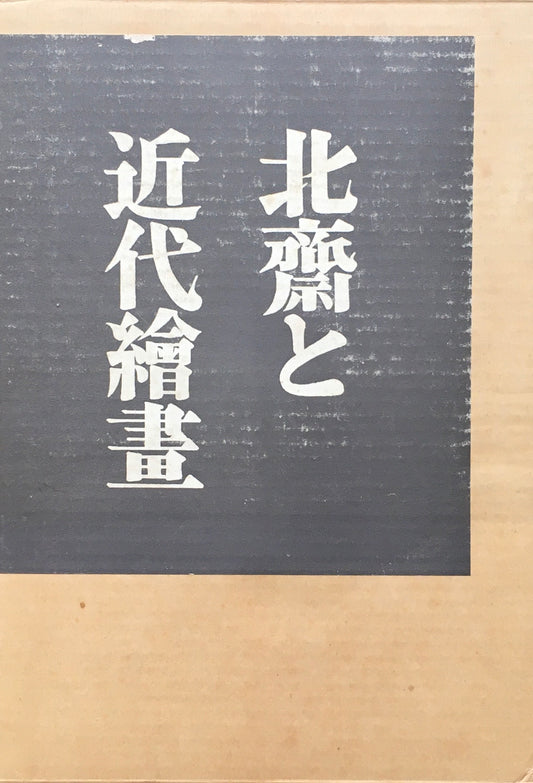 北齋と
近代繪畫